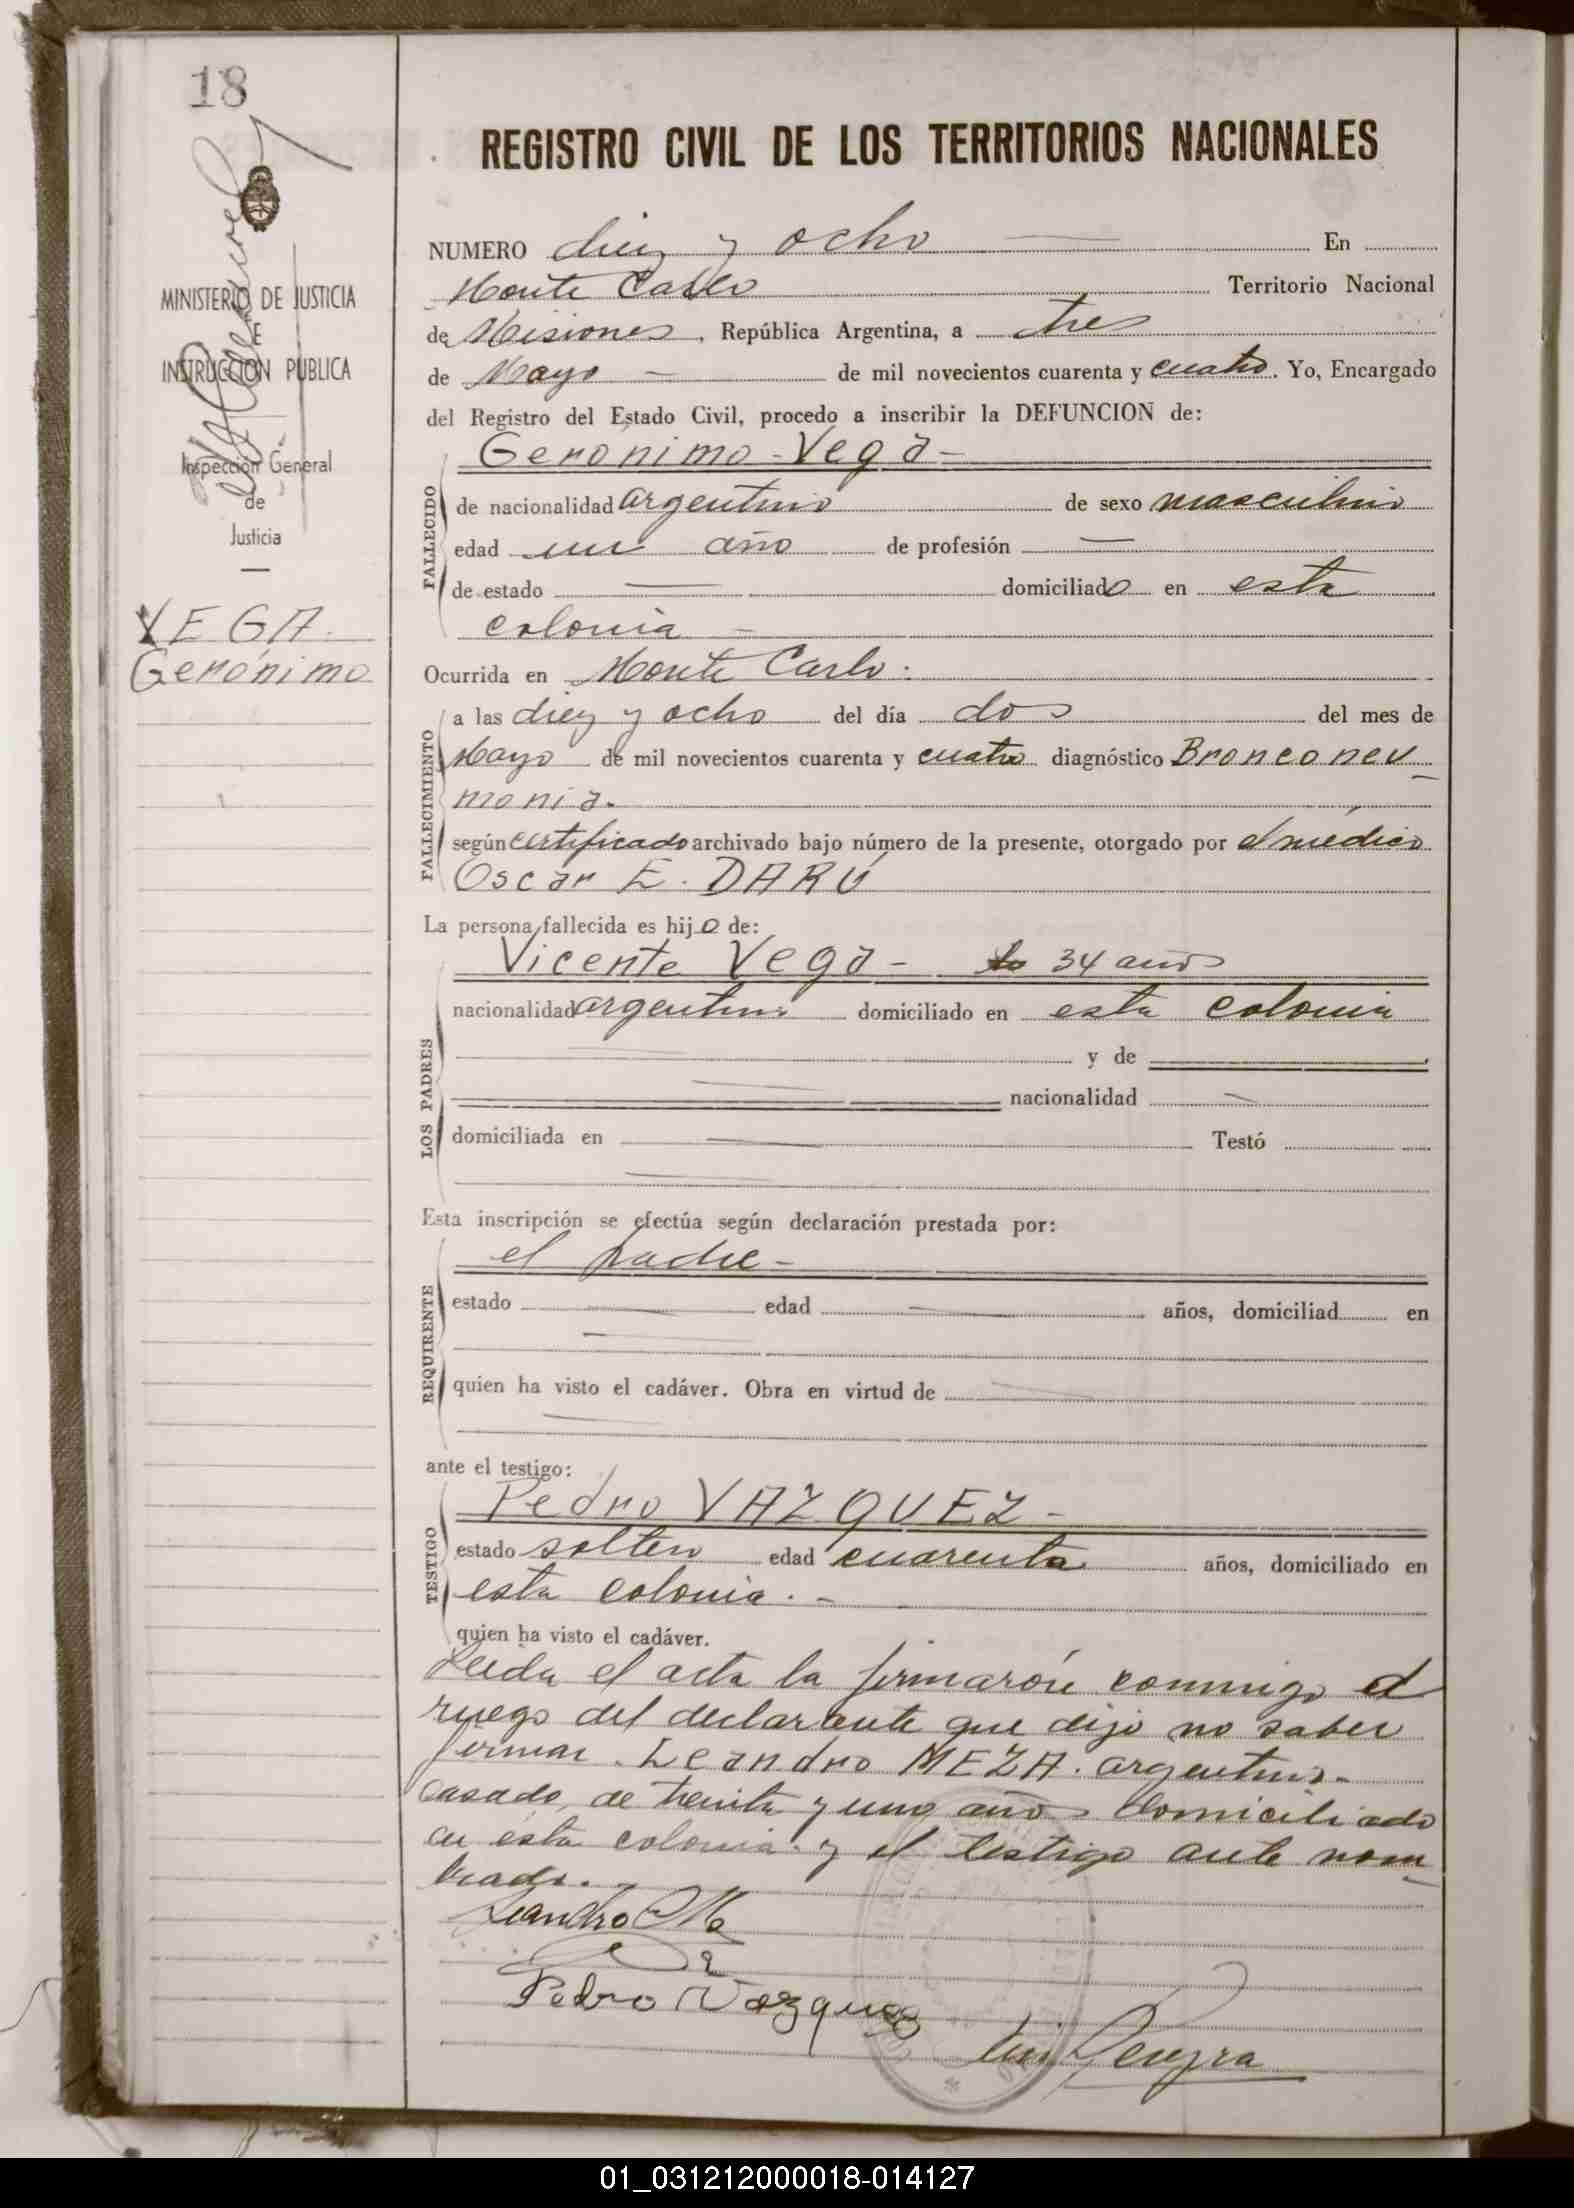 18
REGISTRO CIVIL DE LOS TERRITORIOS NACIONALES
MINISTERIO DE JUSTICIA
E
INSTRUCCION PUBLICA
Inspección General
de
Justicia
VEGA
Gerónimo
NUMERO diez y ocho En
Monte Carlo Territorio Nacional
de Misiones, República Argentina, a tres
de Mayo de mil novecientos cuarenta y cuatro. Yo, Encargado
del Registro del Estado Civil, procedo a inscribir la DEFUNCION de:
Gerónimo - Vega -
FALLECIDO
de nacionalidad argentino de sexo masculino
edad un año de profesión —
de estado — domiciliado en esta
colonia -
Ocurrida en Monte Carlo.
FALLECIMIENTO
a las diez y ocho del día dos del mes de
Mayo de mil novecientos cuarenta y cuatro diagnóstico Bronconeu-
monia.
según certificado archivado bajo número de la presente, otorgado por el médico
Oscar E. DARÚ
La persona fallecida es hijo de:
Vicente Vega - 34 años
LOS PADRES
nacionalidad argentino domiciliado en esta colonia
y de
nacionalidad —
domiciliada en — Testó
Esta inscripción se efectúa según declaración prestada por:
el padre -
REQUIRENTE
estado — edad — años, domiciliad en
quien ha visto el cadáver. Obra en virtud de
ante el testigo:
Pedro VAZQUEZ -
TESTIGO
estado soltero edad cuarenta años, domiciliado en
esta colonia. -
quien ha visto el cadáver.
Leida el acta la firmarón conmigo a
ruego del declarante que dijo no saber
firmar. Leandro MEZA. argentino.-
casado, de treinta y uno años domiciliado
en esta colonia. y el testigo ante nom-
brado. -
Leandro Me
za
Pedro Vazquez
Luis Pereyra
01_031212000018-014127